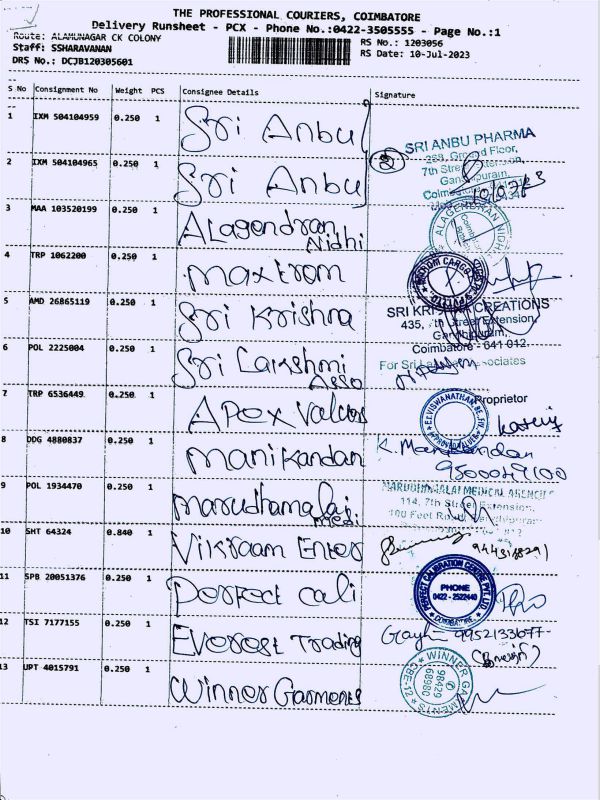 THE PROFESSIONAL COURIERS, COIMBATORE
Delivery Runsheet - PCX - Phone No.:0422-3505555 - Page No.:1
Route: ALAMUNAGAR CK COLONY RS No.: 1203056
Staff: SSHARAVANAN RS Date: 10-Jul-2023
DRS No.: DCJB120305601
S No Consignment No Weight PCS Consignee Details Signature
1 IXM 504104959 0.250 1 Sri Anbu
SRI ANBU PHARMA
288, Ground Floor,
7th Street Extension,
Gandhipuram,
2 IXM 504104965 0.250 1 Sri Anbu
10/07/23
3 MAA 103520199 0.250 1 Alagendran Nidhi
ALAGENDRAN NIDHI
4 TRP 1062200 0.250 1 Maxtrom
5 AMD 26865119 0.250 1 Sri Krishna
SRI KRISHNA CREATIONS
435, 7th Street Extension,
Gandhipuram,
Coimbatore - 641 012.
6 POL 2225004 0.250 1 Sri Lakshmi Asso
For Sri Associates
Proprietor
7 TRP 6536449 0.250 1 Apex Valcus
8 DDG 4880837 0.250 1 Manikandan
K. Manikandan
9500029100
9 POL 1934470 0.250 1 Marudhamalai Medi
MARUDHAMALAI MEDICAL AGENCIES
114, 7th Street Extension,
100 Feet Road, Gandhipuram
10 SHT 64324 0.840 1 Vikraam Enter
11 SPB 20051376 0.250 1 Perfect Cali
PERFECT CALIBRATION CENTRE PVT LTD
PHONE
0422 - 2522440
COIMBATORE
12 TSI 7177155 0.250 1 Everest Trading
13 UPT 4015791 0.250 1 Winner Garments
WINNER GARMENTS
98429
68980
CBE-12